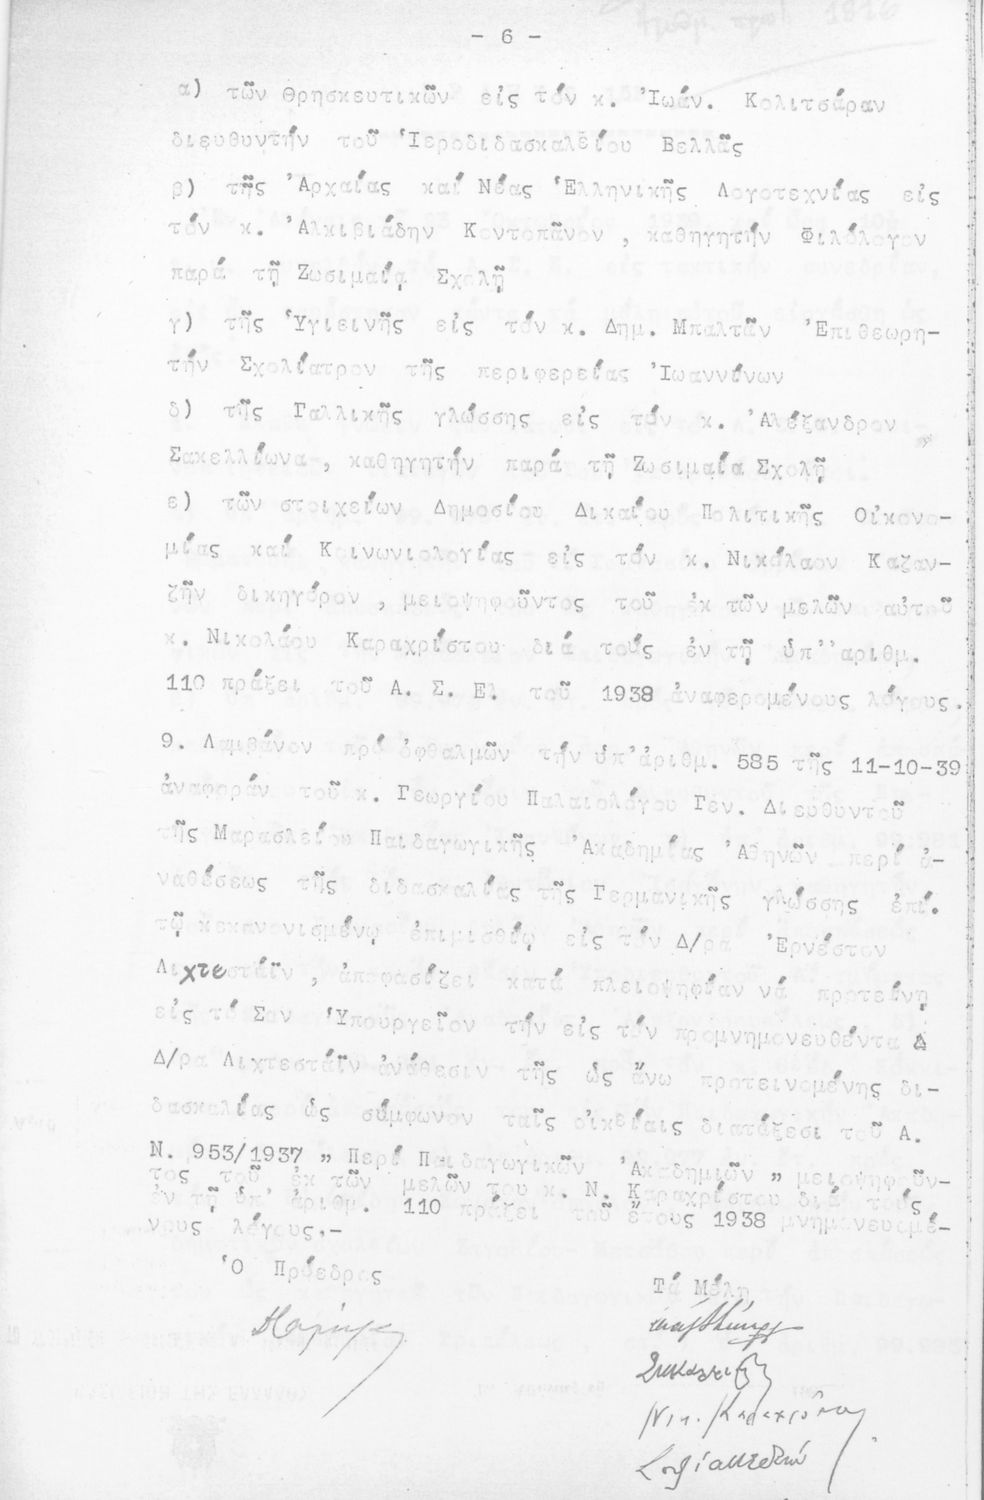 - 6 -
α) τῶν θρησκευτικῶν εἰς τόν κ. Ἰωάν. Κολιτσάραν
διευθυντήν τοῦ Ἱεροδιδασκαλείου Βελλᾶς
β) τῆς Ἀρχαίας καί Νέας Ἑλληνικῆς Λογοτεχνίας εἰς
τόν κ. Ἀλκιβιάδην Κοντοπᾶνον , καθηγητήν Φιλόλογον
παρά τῇ Ζωσιμαίᾳ Σχολῇ
γ) τῆς Ὑγιεινῆς εἰς τόν κ. Δημ. Μπαλτᾶν Ἐπιθεωρη-
τήν Σχολίατρον τῆς περιφερείας Ἰωαννίνων
δ) τῆς Γαλλικῆς γλώσσης εἰς τόν κ. Ἀλέξανδρον
Σακελλίωνα , καθηγητήν παρά τῇ Ζωσιμαία Σχολῇ
ε) τῶν στοιχείων Δημοσίου Δικαίου Πολιτικῆς Οἰκονο-
μίας καί Κοινωνιολογίας εἰς τόν κ. Νικόλαον Καζαν-
ζῆν δικηγόρον , μειοψηφοῦντος τοῦ ἐκ τῶν μελῶν αὐτοῦ
κ. Νικολάου Καραχρίστου διά τούς ἐν τῇ ὑπ'' ἀριθμ.
110 πράξει τοῦ Α. Σ. Ε. τοῦ 1938 ἀναφερομένους λόγους.
9. Λαμβάνον πρό ὀφθαλμῶν τήν ὑπ' ἀριθμ. 585 τῆς 11-10-39
ἀναφοράν τοῦ κ. Γεωργίου Παλαιολόγου Γεν. Διευθυντοῦ
τῆς Μαρασλείου Παιδαγωγικῆς Ἀκαδημίας Ἀθηνῶν περί ἀ-
ναθέσεως τῆς διδασκαλίας τῆς Γερμανικῆς γλώσσης ἐπί.
τῷ κεκανονισμένῳ ἐπιμισθίῳ εἰς τόν Δ/ρα Ἐρνέστον
Λιχτεστάϊν , ἀποφασίζει κατά πλειοψηφίαν νά προτείνῃ
εἰς τό Σον Ὑπουργεῖον τήν εἰς τόν προμνημονευθέντα Δ
Δ/ρα Λιχτεστάϊν ἀνάθεσιν τῆς ὡς ἄνω προτεινομένης δι-
δασκαλίας ὡς σύμφωνον ταῖς οἰκείαις διατάξεσι τοῦ Α.
Ν. 953/1937 „ Περί Παιδαγωγικῶν Ἀκαδημιῶν „ μειοψηφοῦν-
τος τοῦ ἐκ τῶν μελῶν του κ. Ν. Καραχρίστου διά τούς
ἐν τῇ ὑπ' ἀριθμ. 110 πράξει τοῦ ἔτους 1938 μνημονευομέ-
νους λόγους.-
Ὁ Πρόεδρος
Τά Μέλη
Νικ. Καραχρίστου